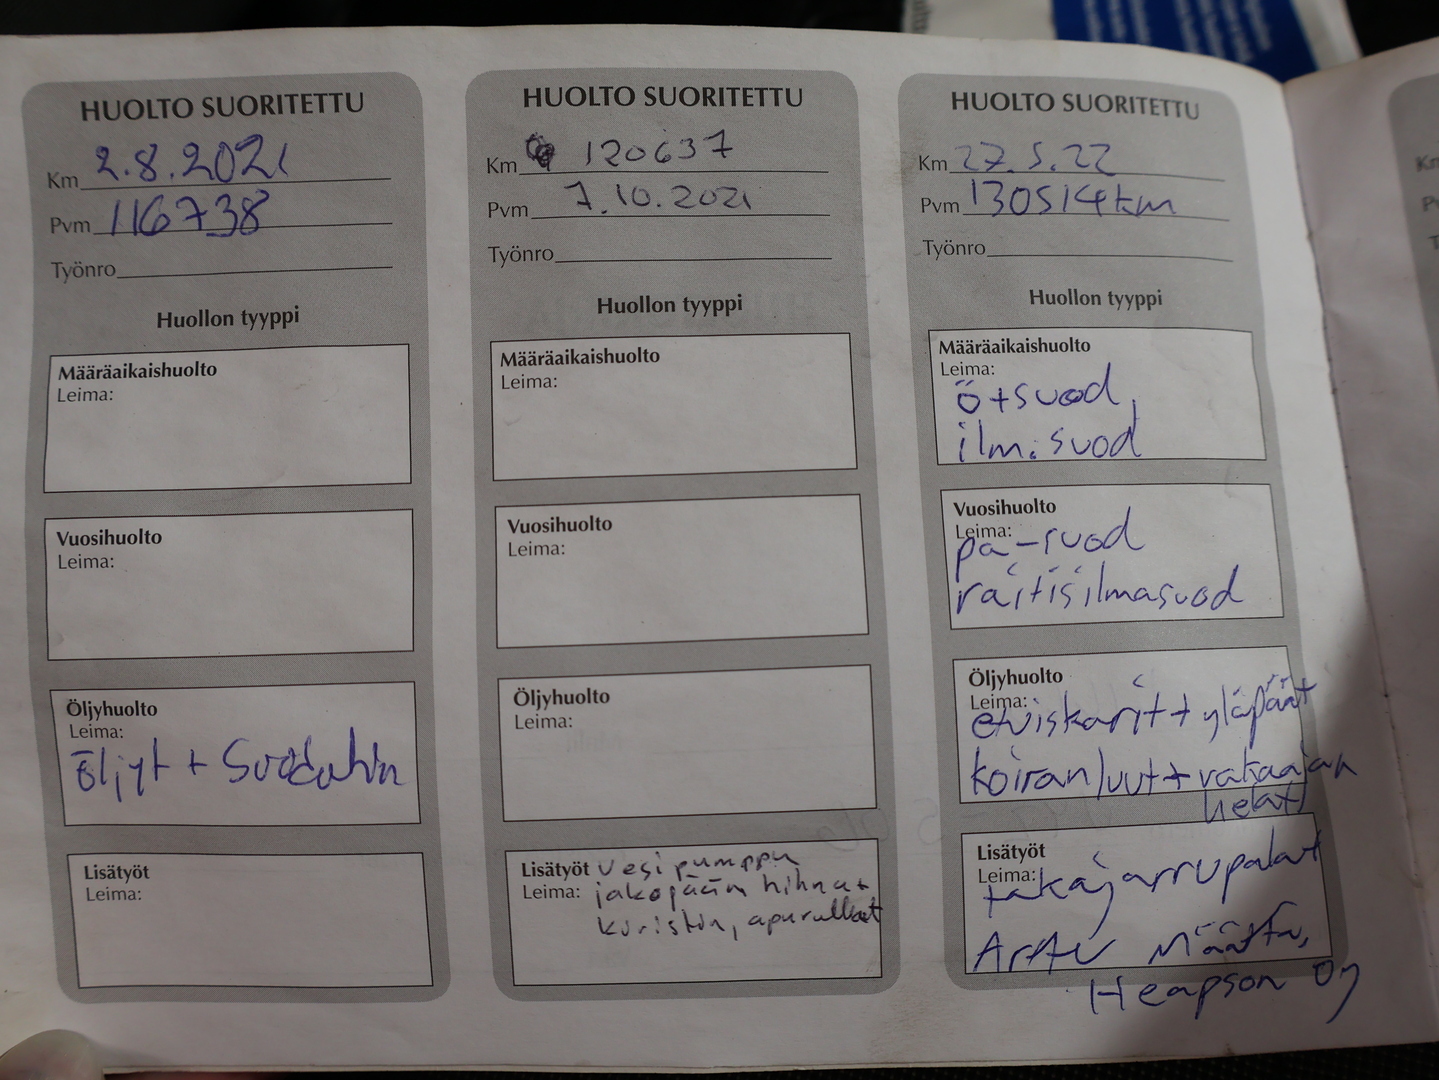 HUOLTO SUORITETTU
Km 2.8.2021
Pvm 116738
Työnro
Huollon tyyppi
Määräaikaishuolto
Leima:
Vuosihuolto
Leima:
Öljyhuolto
Leima:
öljyt + Suodatin
Lisätyöt
Leima:
HUOLTO SUORITETTU
Km 120637
Pvm 7.10.2021
Työnro
Huollon tyyppi
Määräaikaishuolto
Leima:
Vuosihuolto
Leima:
Öljyhuolto
Leima:
Lisätyöt vesipumppu
Leima: jakopään hihna +
kiristin, apurullat
HUOLTO SUORITETTU
Km 27.5.22
Pvm 130514km
Työnro
Huollon tyyppi
Määräaikaishuolto
Leima:
ö+suod,
ilm.suod
Vuosihuolto
Leima:
pa-suod
raitisilmasuod
Öljyhuolto
Leima:
etuiskarit + yläpäät
koiranluut + vakaajan
helat
Lisätyöt
Leima:
takajarrupalat
Arttu Määttä,
Heapson Oy